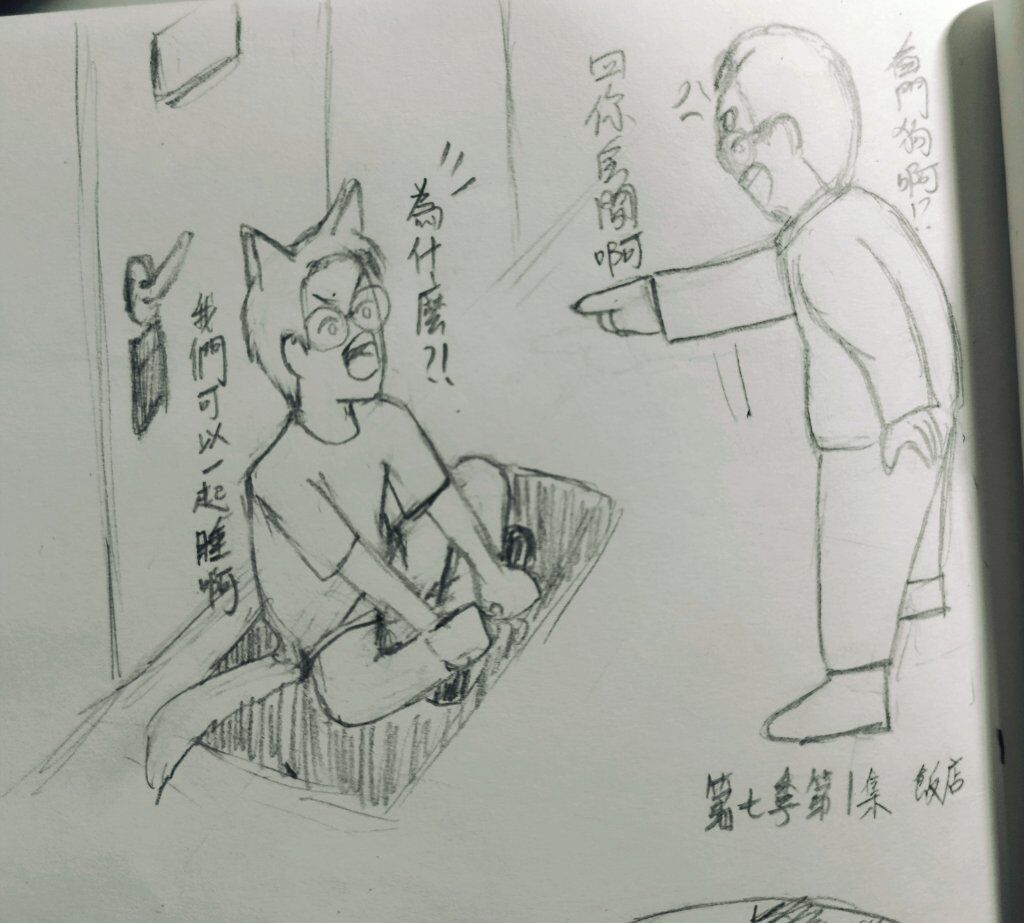 看門狗啊!?
回你房間啊
為什麼?!
我們可以一起睡啊
第七季第1集 飯店